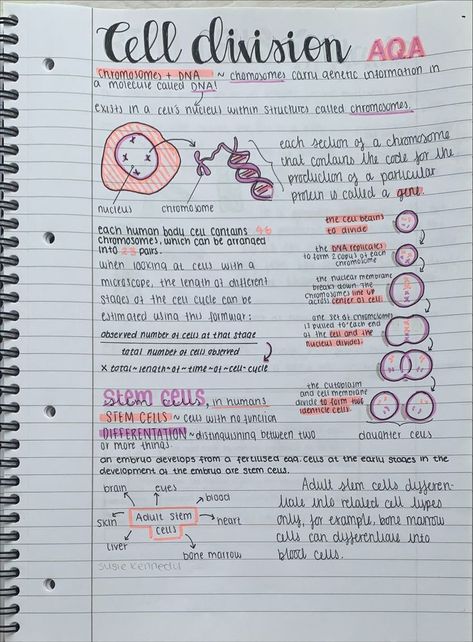 Cell division AQA
chromosomes + DNA ~ chomosomes carry genetic information in
a molecule called DNA!
exists in a cell's nucleus within structures called chromosomes.
each section of a chromosome
that contains the code for the
production of a particular
protein is called a gene.
nucleus
chromosome
each human body cell contains 46
chromosomes, which can be arranged
into 23 pairs.
when looking at cells with a
microscope, the length of different
stages of the cell cycle can be
estimated using this formular:
observed number of cells at that stage
total number of cells observed
x total~length~of~time~of~cell~cycle
the cell begins
to divide
the DNA replicates
to form 2 copies of each
chromosome
the nuclear membrane
break down. The
chromosomes line up
across center of cell
one set of chromosomes
is pulled to each end
of the cell and the
nucleus divides.
the cytoplasm
and cell membrane
divide to form two
identicle cells.
daughter cells
Stem cells, in humans
STEM CELLS ~ cells with no function
DIFFERENTATION ~ distinguishing between two
or more things.
an embryo develops from a fertilised egg. cells at the early stages in the
development of the embryo are stem cells.
brain
eyes
blood
skin
Adult stem
cells
heart
liver
bone marrow
Adult stem cells differen-
tiate into related cell types
only, for example, bone marrow
cells can differentiate into
blood cells.
susie kennedy